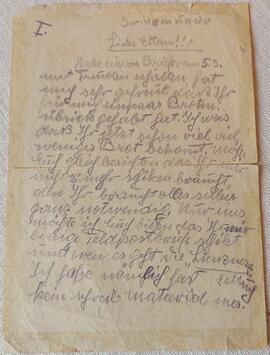 I.
Swinemünde
Liebe Eltern!!!
Habe euren Brief vom 5.3.
mit Freuden erhalten, hat
mich sehr gefreut daß Ihr
für mich ein paar Broten
übrich gehabt hat. Ich was
daß Ihr jetzt schon viel viel
weniger Brot bekomt. Möchte
Euch gleich berichten das Ihr mir
nicht mehr schiken braucht,
den Ihr braucht alles selber
ganz notwendig. Nur uns
möchte ich Euch bitten das Ihr mir
einige Feldpostbriefe schikt
und wen es geht die "Lienzer
Zeitung
Ich habe nämlich fast
kein schreib material mer.